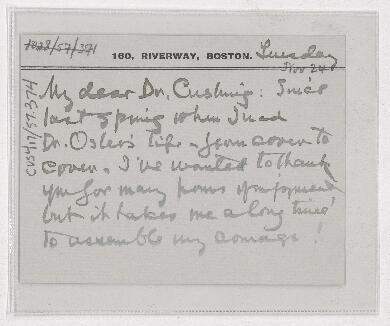 160, RIVERWAY, BOSTON. Tuesday
Nov 24
My dear Dr. Cushing: Since
last spring when I read
Dr. Osler's Life - from cover to
cover, I've wanted to thank
you for many hours of enjoyment
but it takes me a long time
to assemble my courage!
CUS417/57.374